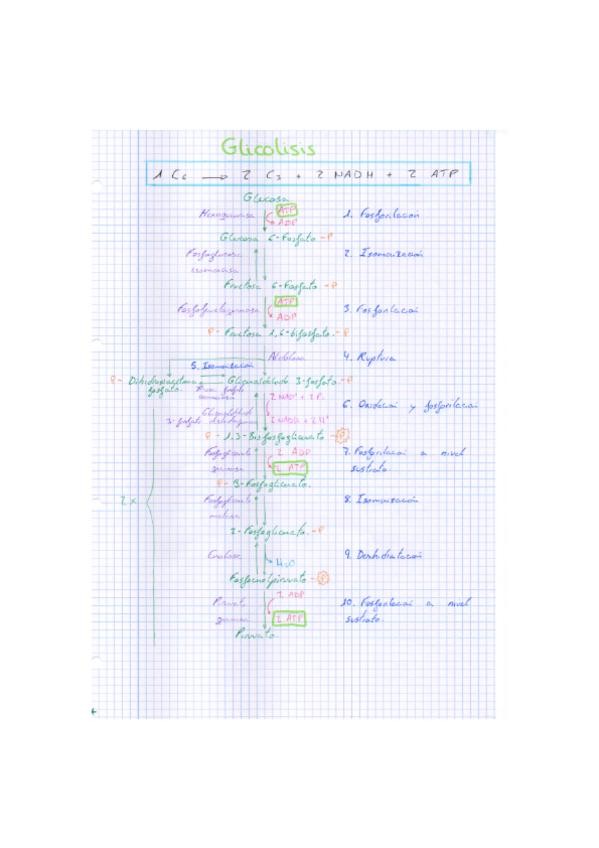 Glicolisis
1 C6 → 2 C3 + 2 NADH + 2 ATP
Glucosa
Hexoquinasa ATP 1. Fosforilación
ADP
Glucosa 6-Fosfato -P
Fosfoglucosa 2. Isomerización
isomerasa
Fructosa 6-Fosfato -P
ATP
Fosfofructoquinasa ADP 3. Fosforilación
P- Fructosa 1,6-bifosfato -P
Aldolasa 4. Ruptura
5. Isomerización
P- Dihidroxiacetona Gliceraldehido 3-fosfato -P
fosfato Triosa fosfato
isomerasa 2 NAD+ + 2 Pi 6. Oxidación y fosforilación
Gliceraldehido
3-fosfato deshidrogenasa 2 NADH + 2 H+
P- 1,3-Bisfosfoglicerato -P
Fosfoglicerato 2 ADP 7. Fosforilación a nivel
quinasa 2 ATP sustrato
P- 3-Fosfoglicerato.
2x Fosfoglicerato 8. Isomerización
mutasa
2-Fosfoglicerato -P
Enolasa 9. Deshidratación
H2O
Fosfoenolpiruvato -P
Piruvato 2 ADP 10. Fosforilación a nivel
quinasa 2 ATP sustrato.
Piruvato